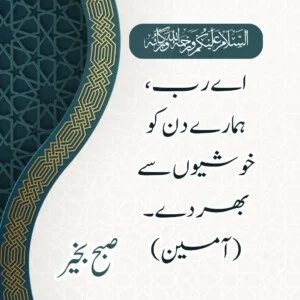 السلام علیکم ورحمۃ اللہ وبرکاتہ
اے رب،
ہمارے دن کو
خوشیوں سے
بھر دے۔
(آمین)
صبح بخیر